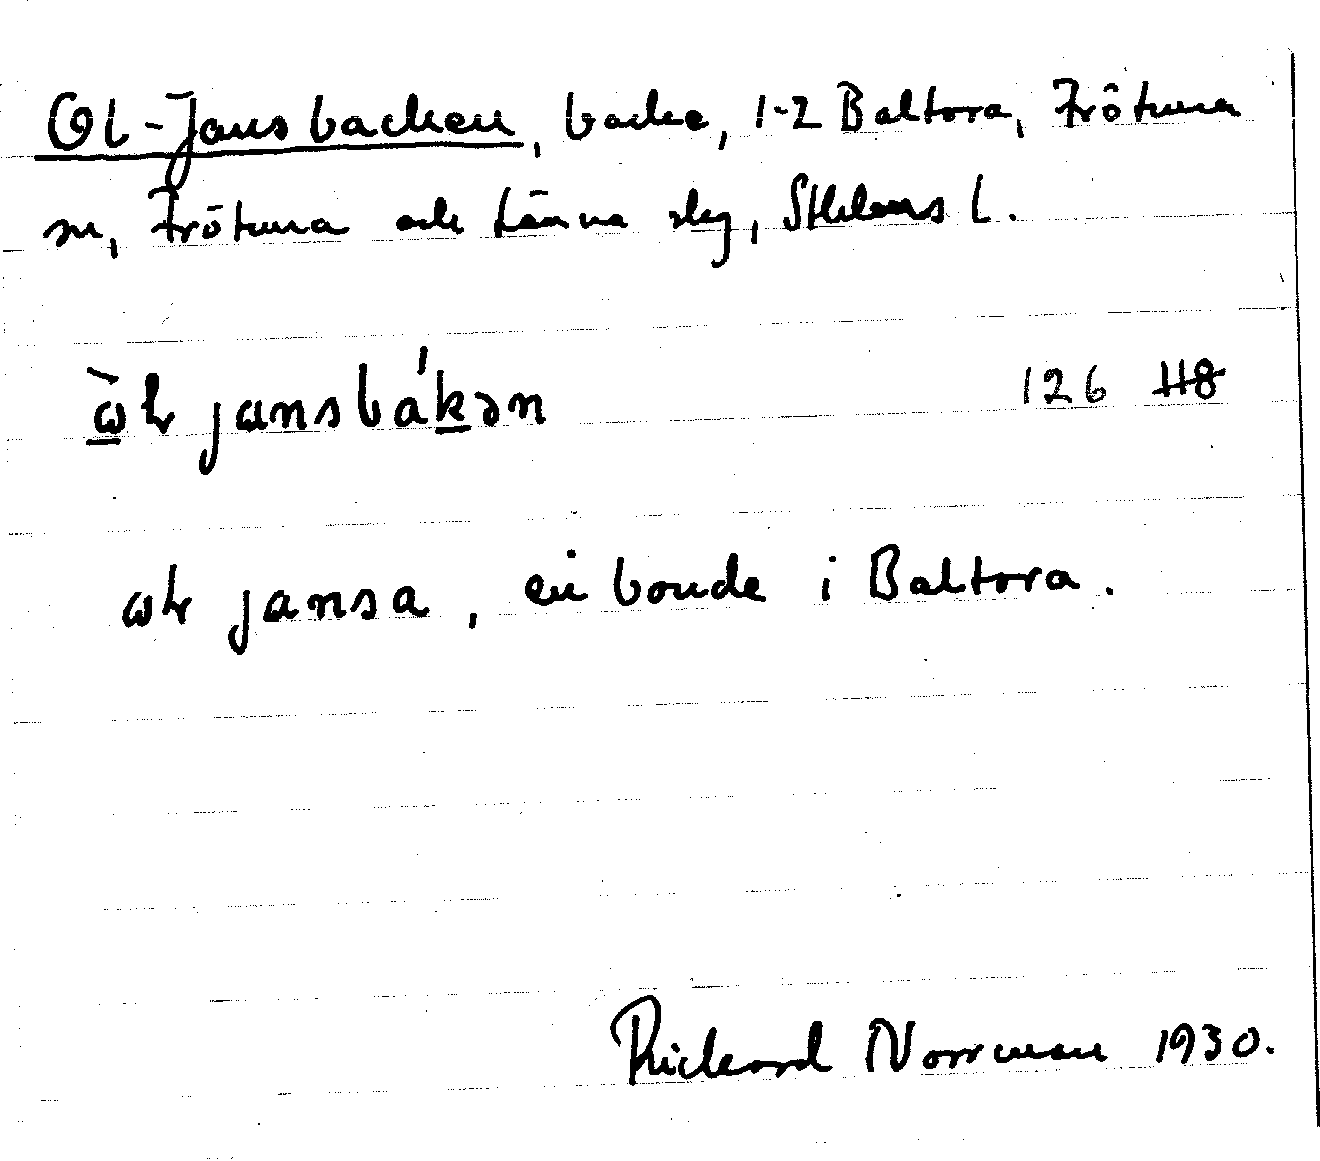 Ol-Jansbacken, backe, 1-2 Baltora, Frötuna
sn, Frötuna och Länna skg, Sthlms l.
jansbákən 126 118
jansa, en bonde i Baltora.
Rickard Norrman 1930.